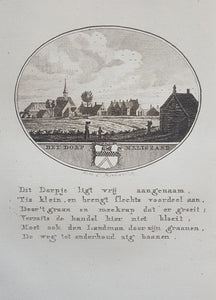 HET DORP MELISZAND
Dit Dorpje ligt vrij aangenaam,
Tis klein, en brengt slechts voordeel aan,
Door't graan en meekrap dat er groeit;
Vermits de handel hier niet bloeit,
Moet ook den Landman door zijn graanen,
De weg tot onderhoud zig baanen.